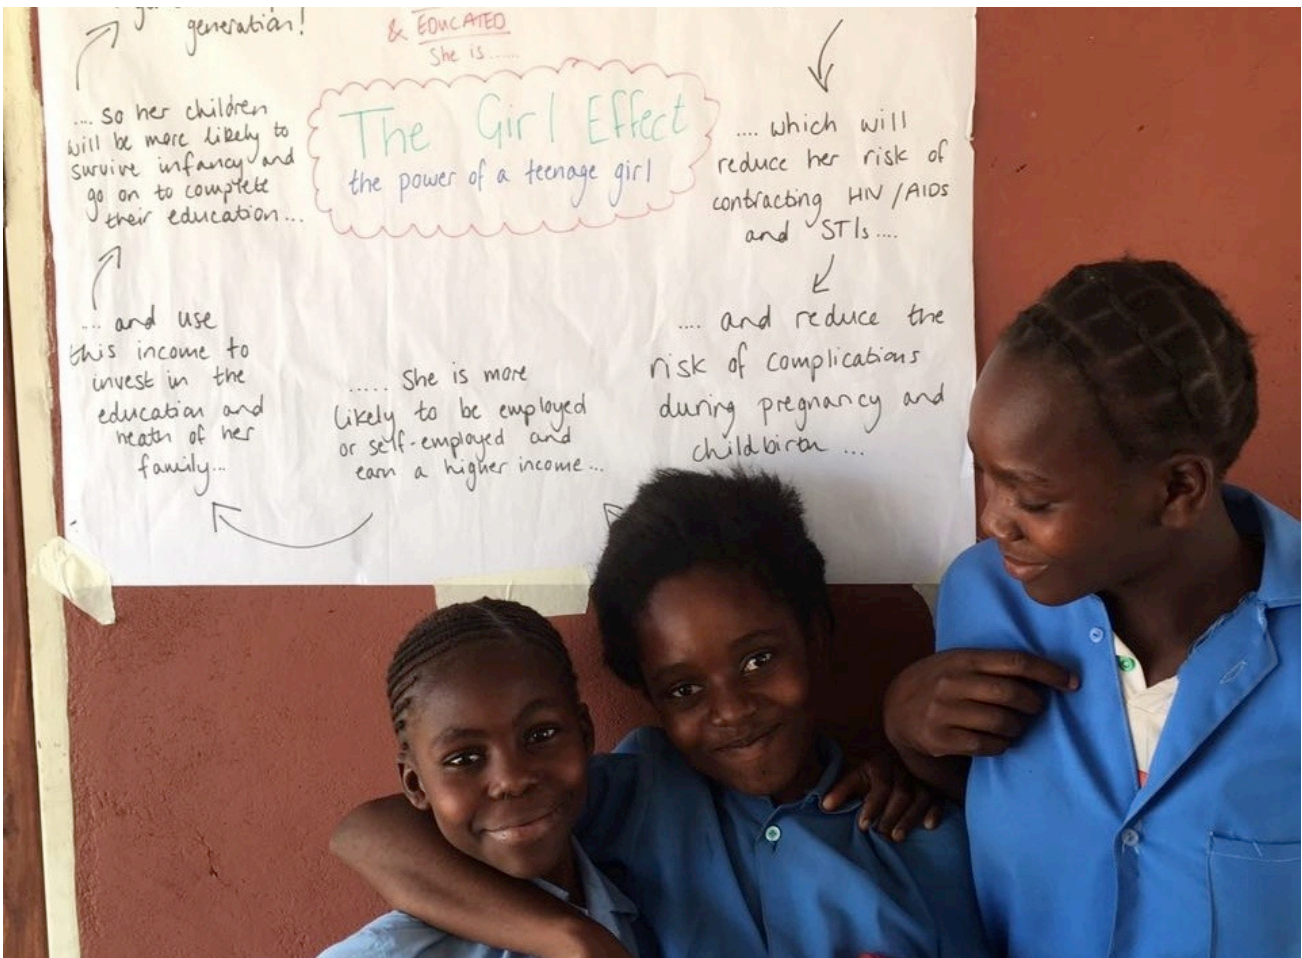 generation!
& EDUCATED
She is......
The Girl Effect
the power of a teenage girl
.... which will
reduce her risk of
contracting HIV/AIDS
and STIs....
.... and reduce the
risk of complications
during pregnancy and
childbirth ...
..... She is more
likely to be employed
or self-employed and
earn a higher income...
.... and use
this income to
invest in the
education and
heath of her
family...
.... so her children
will be more likely to
survive infancy and
go on to complete
their education...